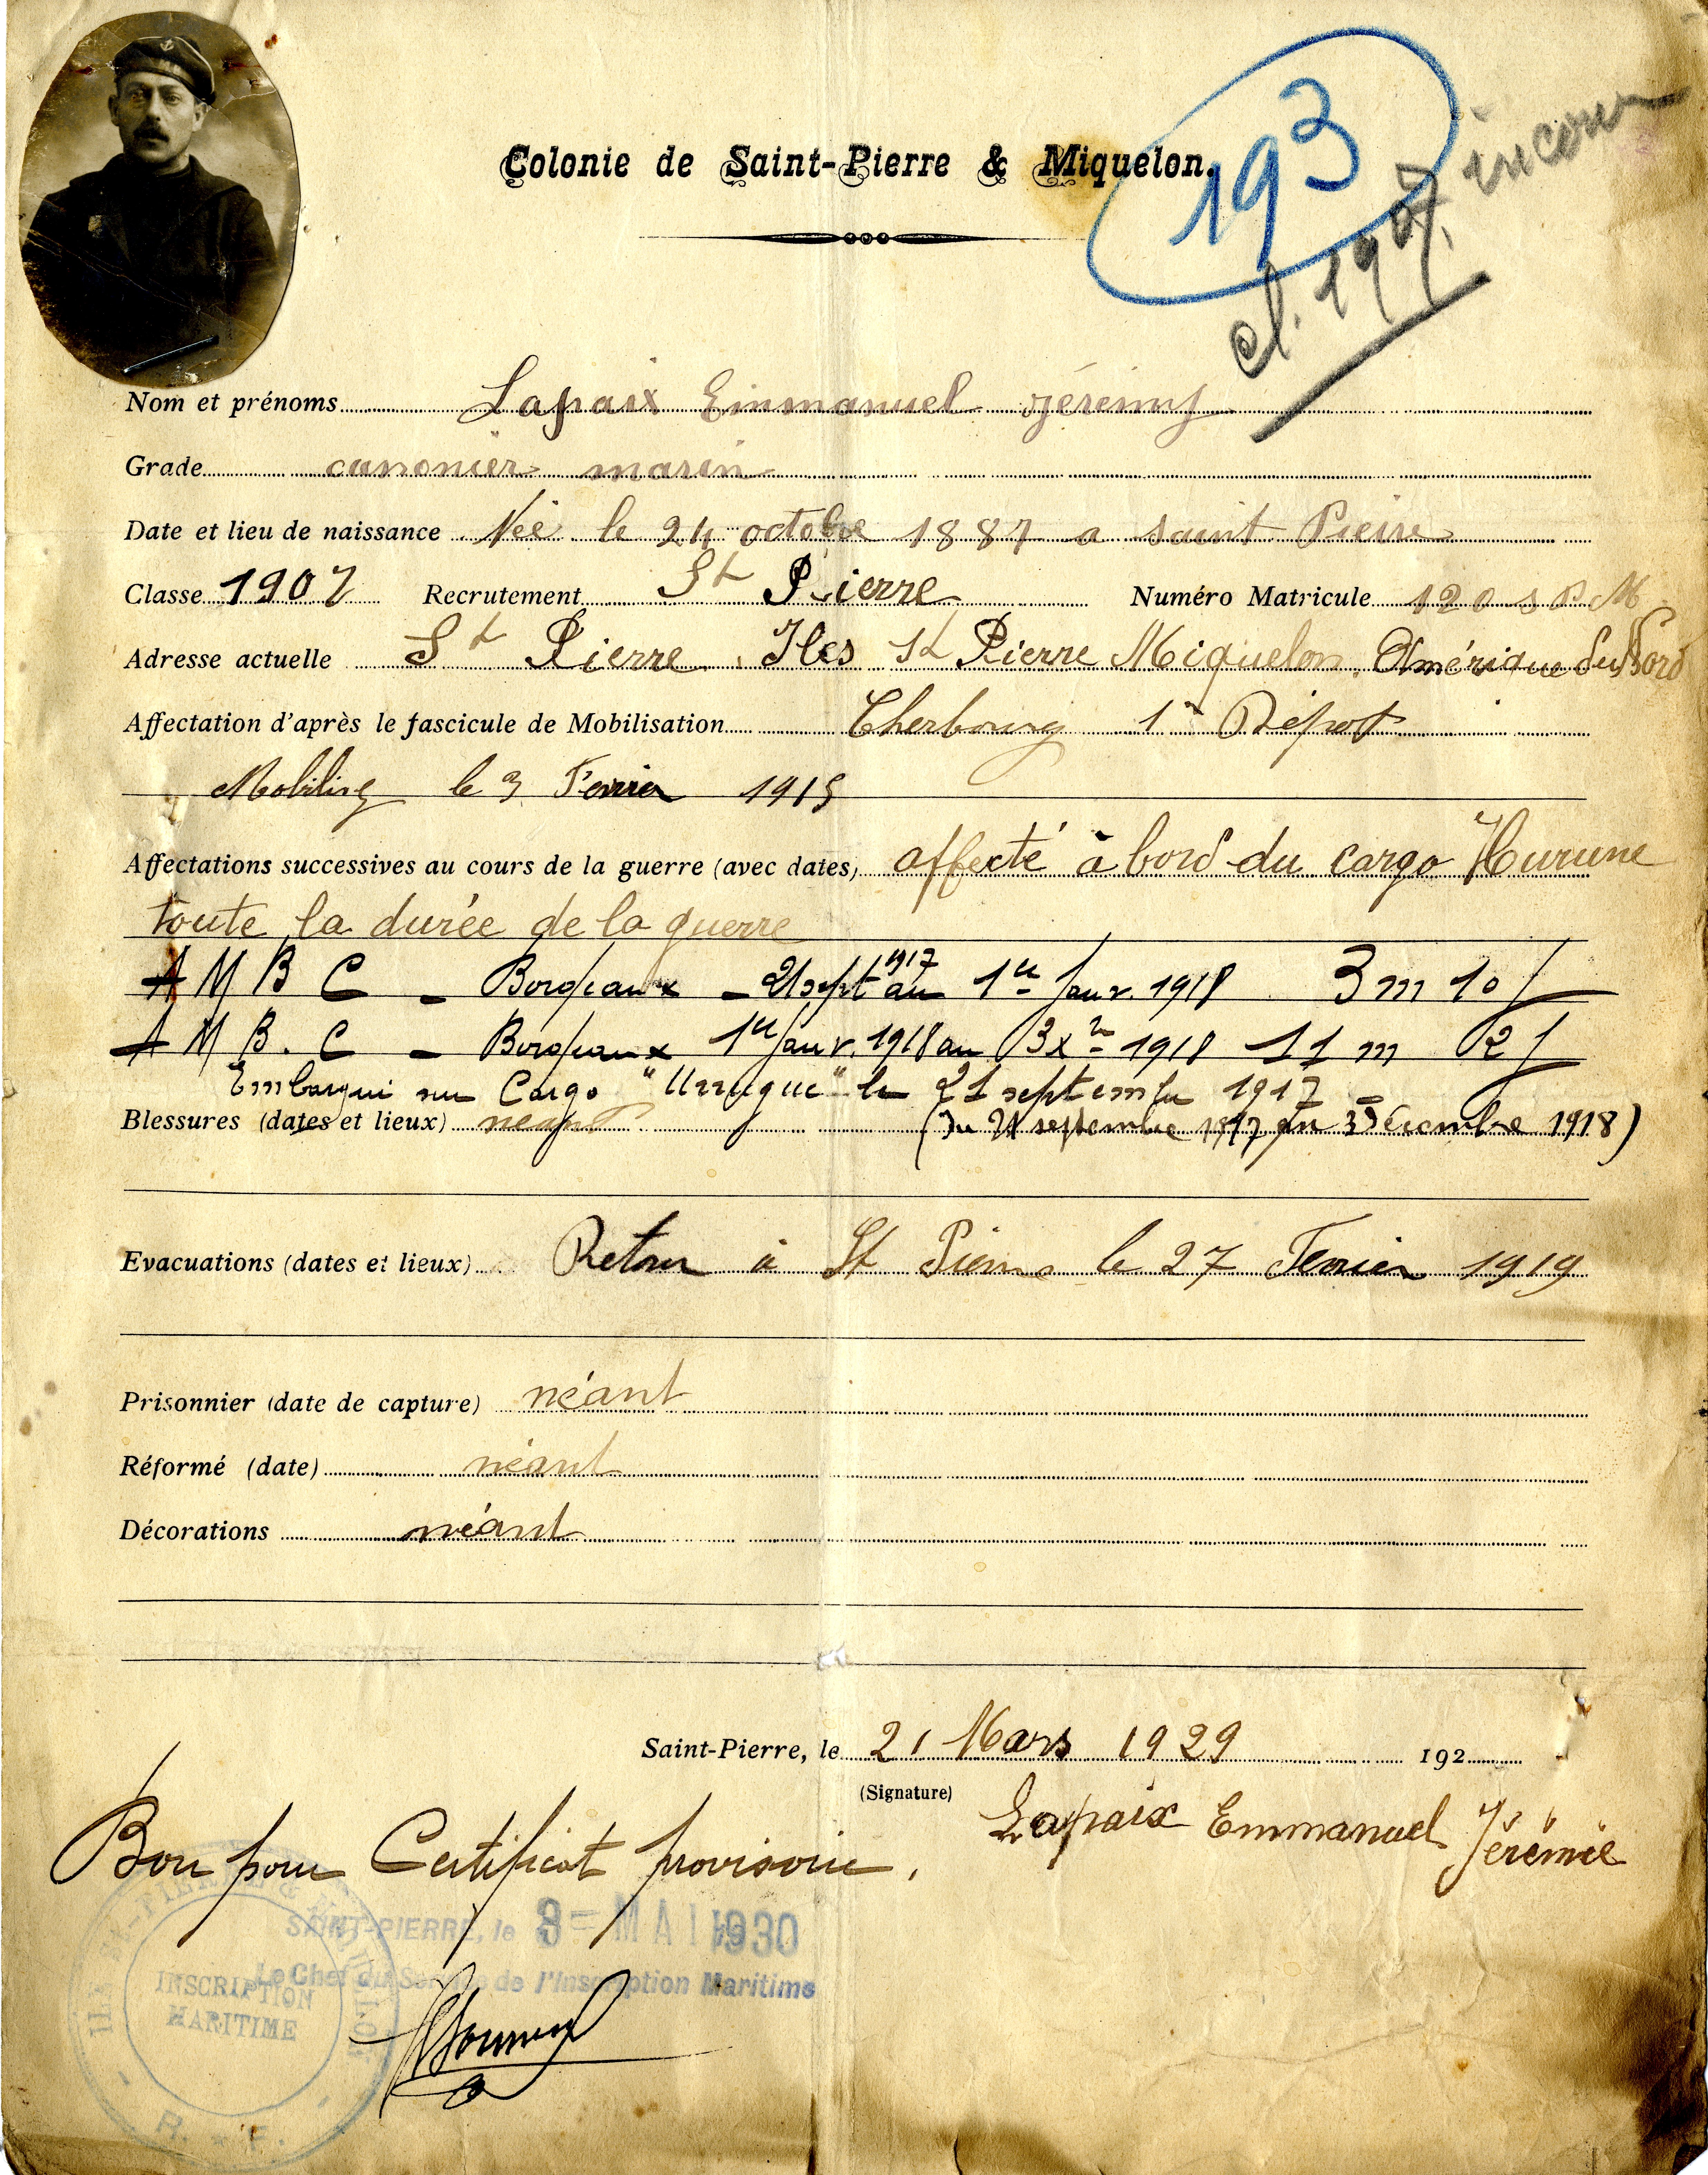 193
cl. 1907
Colonie de Saint-Pierre & Miquelon.
Nom et prénoms Lapaix Emmanuel Jérémy
Grade canonier marin
Date et lieu de naissance Née le 24 octobre 1887 a saint Pierre
Classe 1907 Recrutement St Pierre Numéro Matricule 120 S P. M
Adresse actuelle St Pierre Iles St Pierre Miquelon Amérique du Nord
Affectation d'après le fascicule de Mobilisation Cherbourg 1er Dépot
Mobilisé le 3 Fevrier 1915
Affectations successives au cours de la guerre (avec dates) affecté à bord du cargo
toute la durée de la guerre
A M B C - Bordeaux - 21 sept 1917 au 1er Janv. 1918 3 m 10 j
A M B. C - Bordeaux 1er Janv. 1918 au 3 Xre 1918 11 m 2 j
Embarqué sur Cargo "Urrugne" le 21 septembre 1917
Blessures (dates et lieux) neant (du 21 septembre 1917 au 3 Décembre 1918)
Evacuations (dates et lieux) Retour à St Pierre le 27 Fevrier 1919
Prisonnier (date de capture) néant
Réformé (date) néant
Décorations néant
Saint-Pierre, le 21 Mars 1929 192
(Signature) Lapaix Emmanuel Jérémie
Bon pour Certificat provisoire.
SAINT-PIERRE, le 3 = MAI 1930
Le Chef du Service de l'Inscription Maritime
INSCRIPTION
MARITIME
R. F.